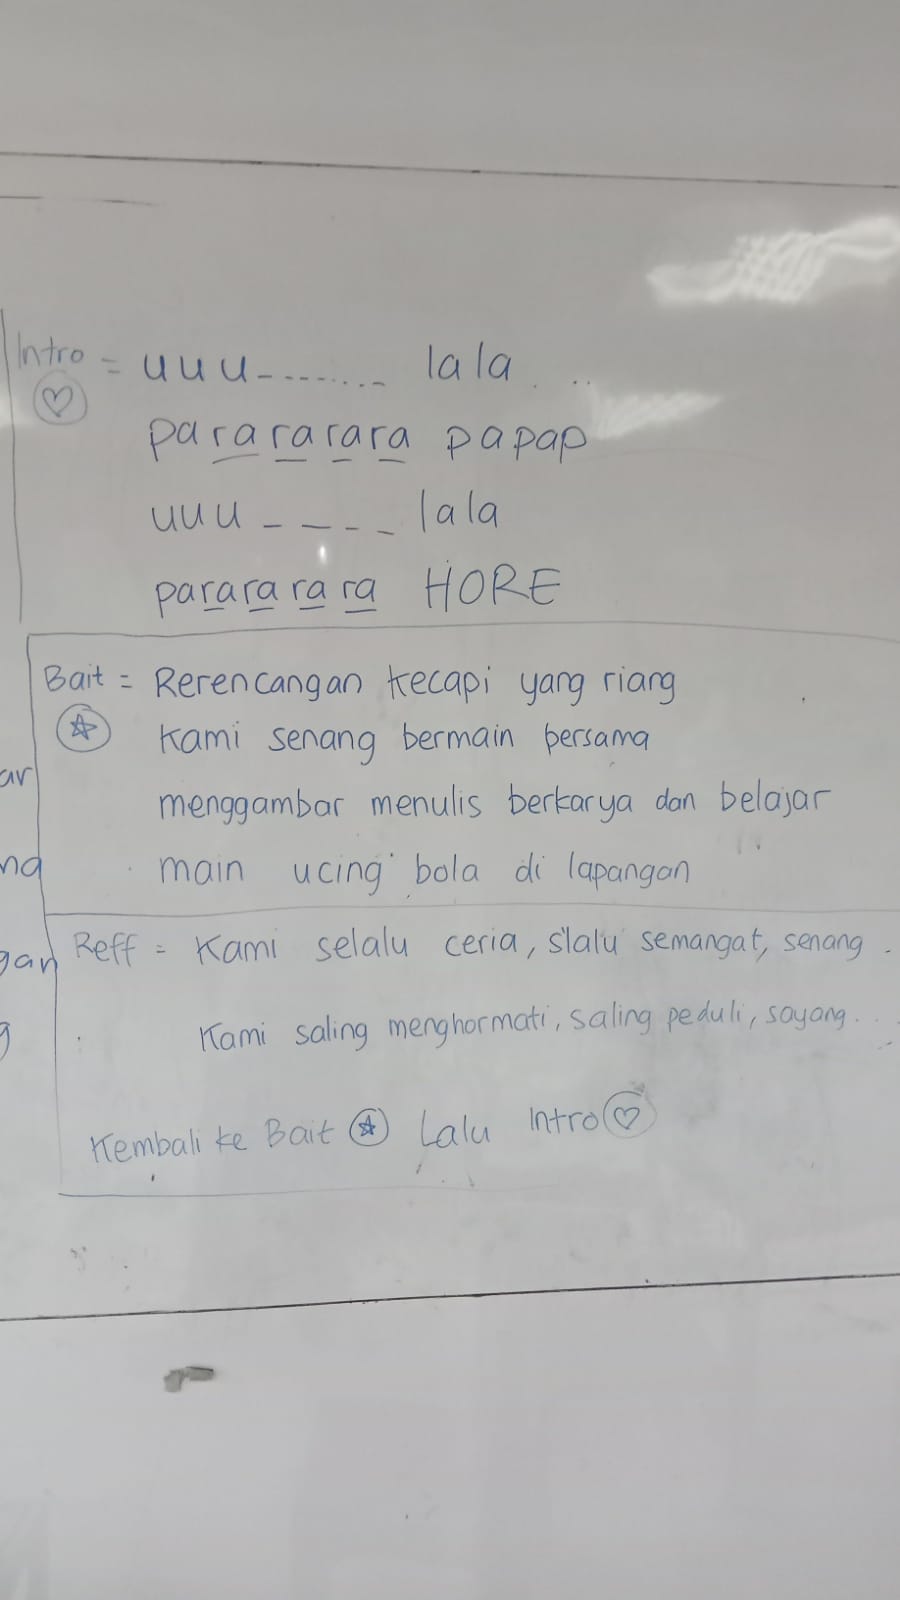 Intro = uuu-........ lala . ..
parararara papap
uuu _ _ _ _ lala
parararara HORE
Bait = Rerencangan kecapi yang riang
kami senang bermain bersama
menggambar menulis berkarya dan belajar
main ucing bola di lapangan
Reff = Kami selalu ceria, s'lalu semangat, senang .
Kami saling menghormati, saling peduli, sayang . .
Kembali ke Bait Lalu Intro
ar
ng
gan
g